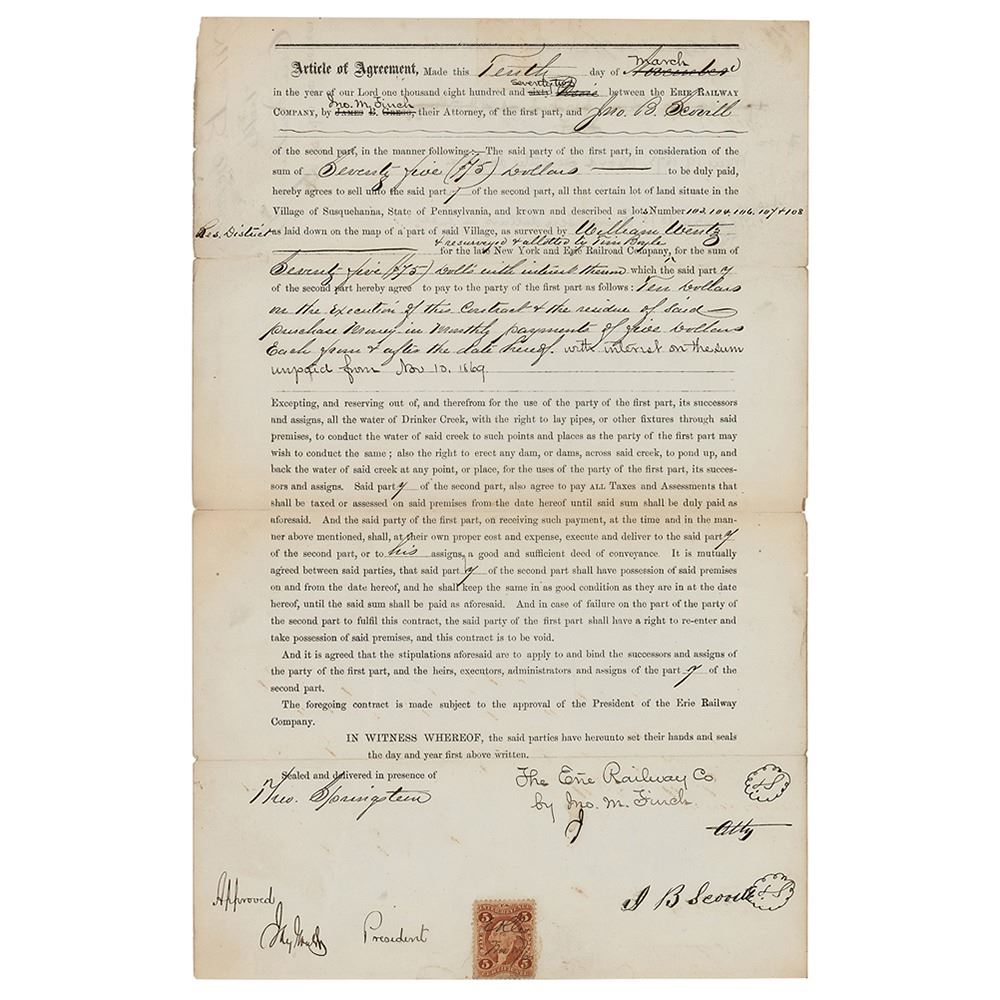 March
Article of Agreement, Made this Tenth day of November
seventy two
in the year of our Lord one thousand eight hundred and sixty between the Erie Railway
Jno. M. Finch
Company, by James B. Gregg, their Attorney, of the first part, and Jno. B. Scovill
of the second part, in the manner following:—The said party of the first part, in consideration of the
sum of Seventy five (75) Dollars to be duly paid,
hereby agrees to sell unto the said party of the second part, all that certain lot of land situate in the
Village of Susquehanna, State of Pennsylvania, and known and described as lots Number 102, 104, 106, 107 & 108
Res. District as laid down on the map of a part of said Village, as surveyed by William Wentz
& resurveyed & allotted by Tim Boyle
for the late New York and Erie Railroad Company, for the sum of
Seventy five (75) Dolls with interest thereon which the said party
of the second part hereby agree to pay to the party of the first part as follows: Ten Dollars
on the Execution of this Contract & the residue of said
purchase Money in Monthly payments of five Dollars
Each from & after the date hereof. with interest on the sum
unpaid from Nov 10. 1869
Excepting, and reserving out of, and therefrom for the use of the party of the first part, its successors
and assigns, all the water of Drinker Creek, with the right to lay pipes, or other fixtures through said
premises, to conduct the water of said creek to such points and places as the party of the first part may
wish to conduct the same; also the right to erect any dam, or dams, across said creek, to pond up, and
back the water of said creek at any point, or place, for the uses of the party of the first part, its succes-
sors and assigns. Said party of the second part, also agree to pay ALL Taxes and Assessments that
shall be taxed or assessed on said premises from the date hereof until said sum shall be duly paid as
aforesaid. And the said party of the first part, on receiving such payment, at the time and in the man-
ner above mentioned, shall, at their own proper cost and expense, execute and deliver to the said party
of the second part, or to his assigns, a good and sufficient deed of conveyance. It is mutually
agreed between said parties, that said party of the second part shall have possession of said premises
on and from the date hereof, and he shall keep the same in as good condition as they are in at the date
hereof, until the said sum shall be paid as aforesaid. And in case of failure on the part of the party of
the second part to fulfil this contract, the said party of the first part shall have a right to re-enter and
take possession of said premises, and this contract is to be void.
And it is agreed that the stipulations aforesaid are to apply to and bind the successors and assigns of
the party of the first part, and the heirs, executors, administrators and assigns of the party of the
second part.
The foregoing contract is made subject to the approval of the President of the Erie Railway
Company.
IN WITNESS WHEREOF, the said parties have hereunto set their hands and seals
the day and year first above written.
Sealed and delivered in presence of
Theo. Springsteen
The Erie Railway Co
by Jno. M. Finch
LS
Atty
J B Scovill
LS
Approved
Jay Gould President
5 5
5 CERTIFICATE 5